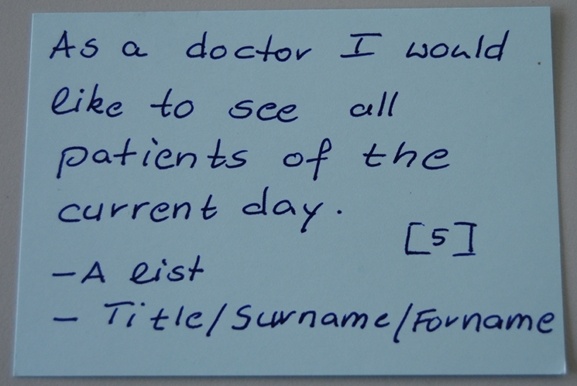 As a doctor I would
like to see all
patients of the
current day.
[5]
- A list
- Title/Surname/Forname